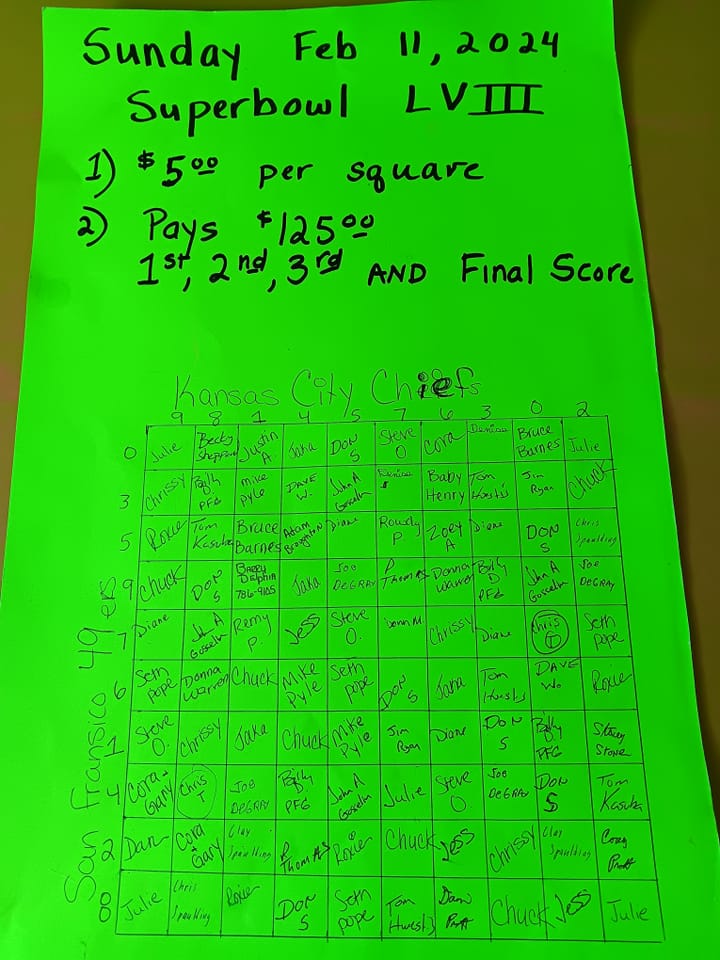 Sunday Feb 11, 2024
Superbowl LVIII
1) $5.00 per square
2) Pays $125.00
1st, 2nd, 3rd AND Final Score
Kansas City Chiefs
9 8 1 4 5 7 6 3 0 2
San fransico 49ers
0 Julie Becky Sheppard Justin A. Jaka DON S Steve O Cora Denise Bruce Barnes Julie
3 Chrissy Billy PFG Mike Pyle DAVE W. John A Gosselin Denise Baby Henry Tom Hwsts Jim Ryan Chuck
5 Roxie Tom Kasuba Bruce Barnes Adam Broughton Diane Rowdy P. Zoey A Diane DON S Chris Spaulding
9 Chuck DON S Barry Dolphin 786-9105 Jaka Joe DeGRAY P Thomas Donna Warren Billy D PFG John A Gosselin Joe DEGRAY
7 Diane John A Gosselin Remy P. Jess Steve O. Donn M. Chrissy Diane Chris T Seth Pope
6 Seth Pope Donna Warren Chuck Mike Pyle Seth Pope DON S Jana Tom Hwsts DAVE W. Roxie
1 Steve O. Chrissy Jaka Chuck Mike Pyle Jim Ryan Diane DON S Billy PFG Stacy Stone
4 Cora + Gary Chris T Joe DEGRAY Billy PFG John A Gosselin Julie Steve O Joe DEGRAY DON S Tom Kasuba
2 Dan Cora + Gary Clay Spaulding P Thomas Roxie Chuck Jess Chrissy Clay Spaulding Cory Pratt
8 Julie Chris Spaulding Roxie DON S Seth Pope Tom Hwsts Dan Pratt Chuck Jess Julie